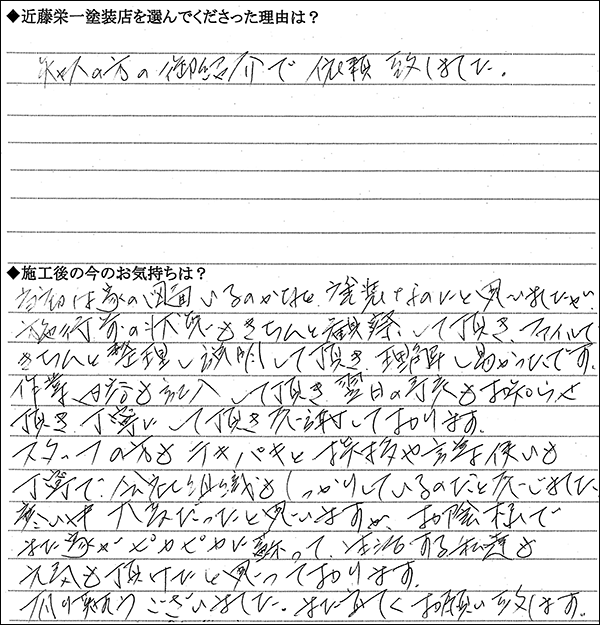 ◆近藤栄一塗装店を選んでくださった理由は？
知人の方の御紹介で依頼致しました。
◆施工後の今のお気持ちは？
当初は家の図面いるのかなと、塗装なのにと思いましたが、
施行前の状況もきちんと観察して頂き、ファイルで
きちんと整理し説明して頂き、理解し易かったです。
作業内容も記入して頂き、翌日の予定もお知らせ
頂き丁寧にして頂き感謝しております。
スタッフの方もテキパキと挨拶や言葉使いも
丁寧で、会社の組織もしっかりしているのだと感じました。
寒い中大変だったと思いますが、お陰様で
また家がピカピカに蘇って、生活する私達も
元気も頂けたと思っております。
有り難うございました。また宜しくお願い致します。